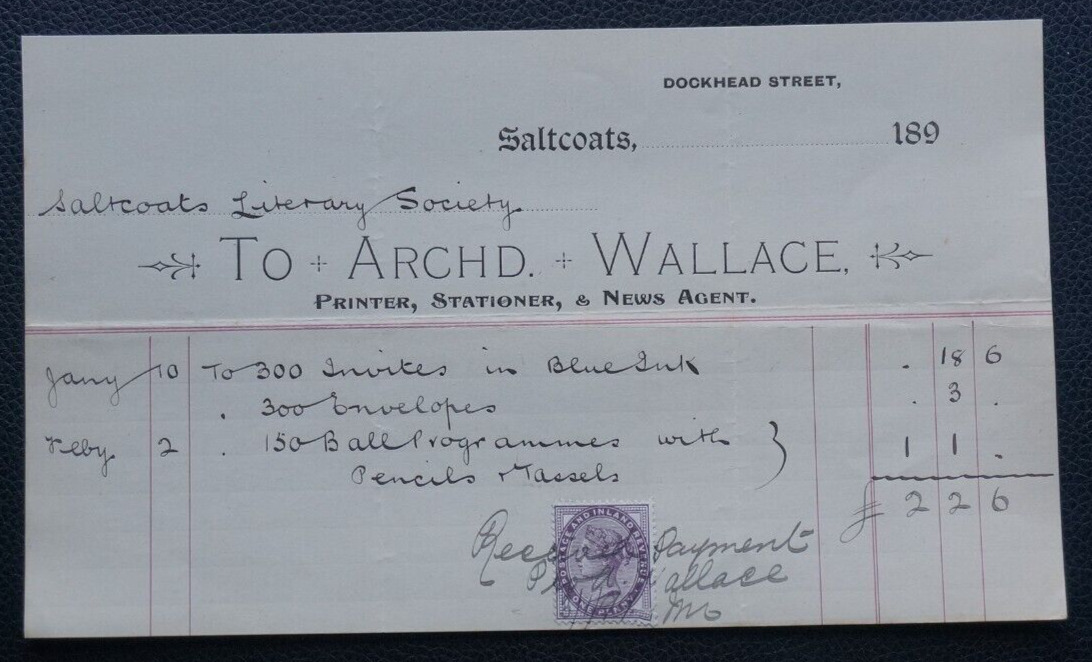 DOCKHEAD STREET,
Saltcoats, 189
Saltcoats Literary Society
TO + ARCHD. + WALLACE,
PRINTER, STATIONER, & NEWS AGENT.
Jany 10 To 300 Invites in Blue Ink . 18 6
. 300 Envelopes . 3 .
Feby 2 . 150 Ball Programmes with 1 1 .
Pencils & Tassels
£ 2 2 6
POSTAGE AND INLAND REVENUE
ONE PENNY
Received Payment
Wallace